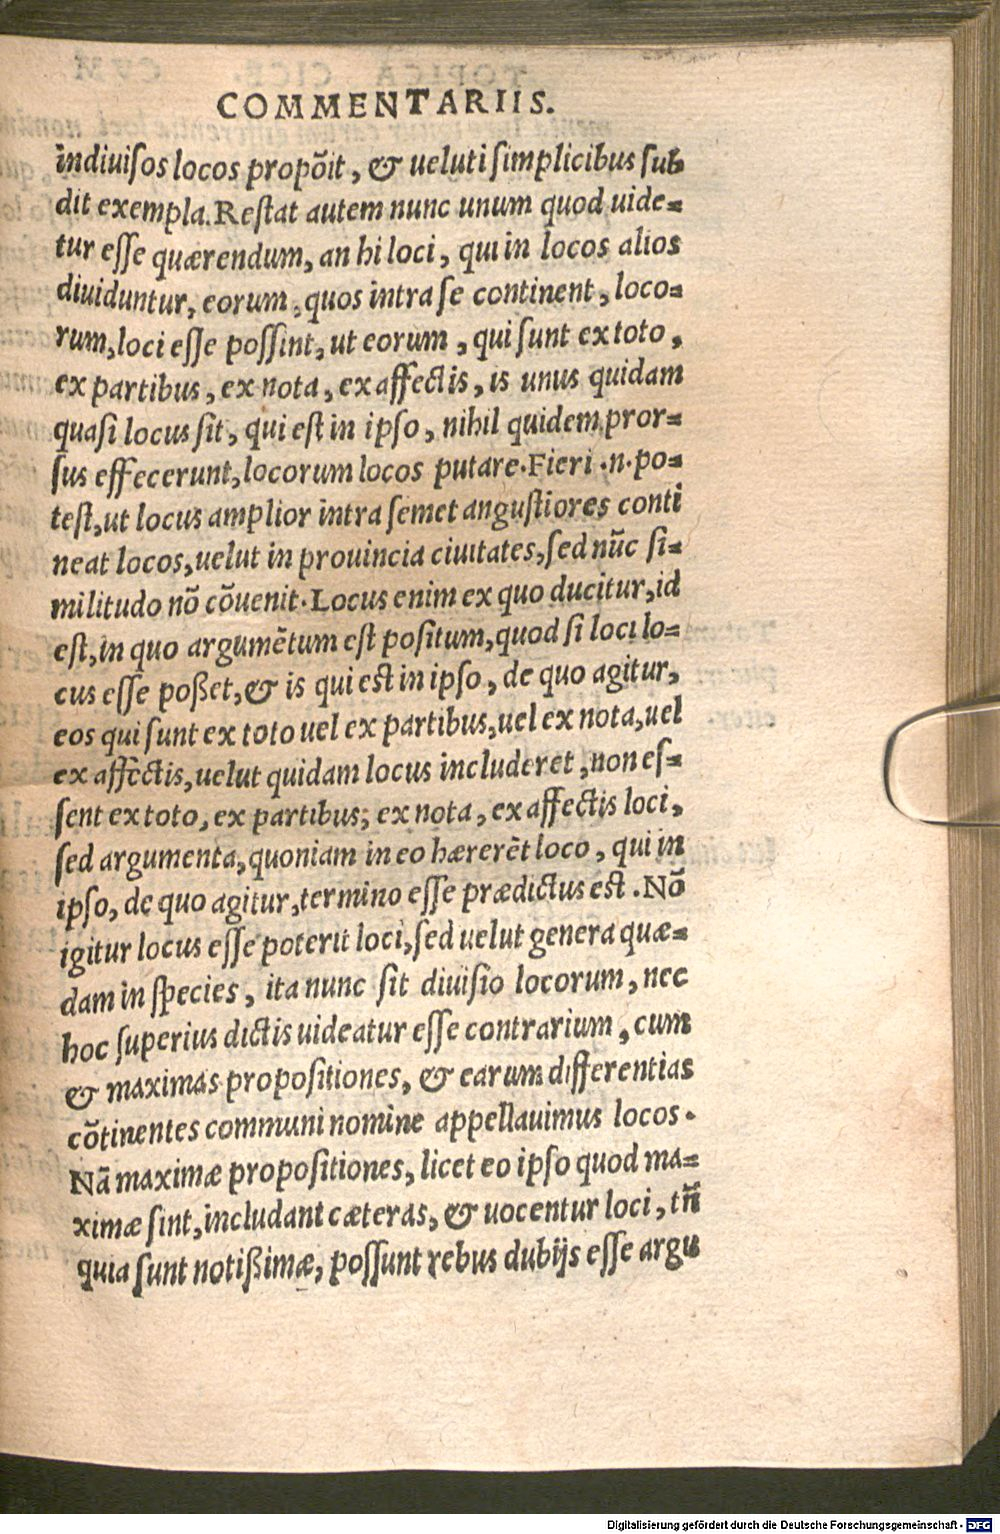 COMMENTARIIS.
indiuisos locos propõit, & ueluti simplicibus sub
dit exempla. Restat autem nunc unum quod uide-
tur esse quærendum, an hi loci, qui in locos alios
diuiduntur, eorum, quos intra se continent, loco-
rum, loci esse possint, ut eorum, qui sunt ex toto,
ex partibus, ex nota, ex affectis, is unus quidam
quasi locus sit, qui est in ipso, nihil quidem pror-
sus effecerunt, locorum locos putare. Fieri .n. po-
test, ut locus amplior intra semet angustiores conti
neat locos, uelut in prouincia ciuitates, sed nũc si-
militudo nõ cõuenit. Locus enim ex quo ducitur, id
est, in quo argumẽtum est positum, quod si loci lo-
cus esse poßet, & is qui est in ipso, de quo agitur,
eos qui sunt ex toto uel ex partibus, uel ex nota, uel
ex affectis, uelut quidam locus includeret, non es-
sent ex toto, ex partibus, ex nota, ex affectis loci,
sed argumenta, quoniam in eo hærerẽt loco, qui in
ipso, de quo agitur, termino esse prædictus est. Nõ
igitur locus esse poterit loci, sed uelut genera quæ-
dam in species, ita nunc sit diuisio locorum, nec
hoc superius dictis uideatur esse contrarium, cum
& maximas propositiones, & earum differentias
cõtinentes communi nomine appellauimus locos.
Nã maximæ propositiones, licet eo ipso quod ma-
ximæ sint, includant cæteras, & uocentur loci, tñ
quia sunt notißimæ, possunt rebus dubijs esse argu
Digitalisierung gefördert durch die Deutsche Forschungsgemeinschaft - DFG